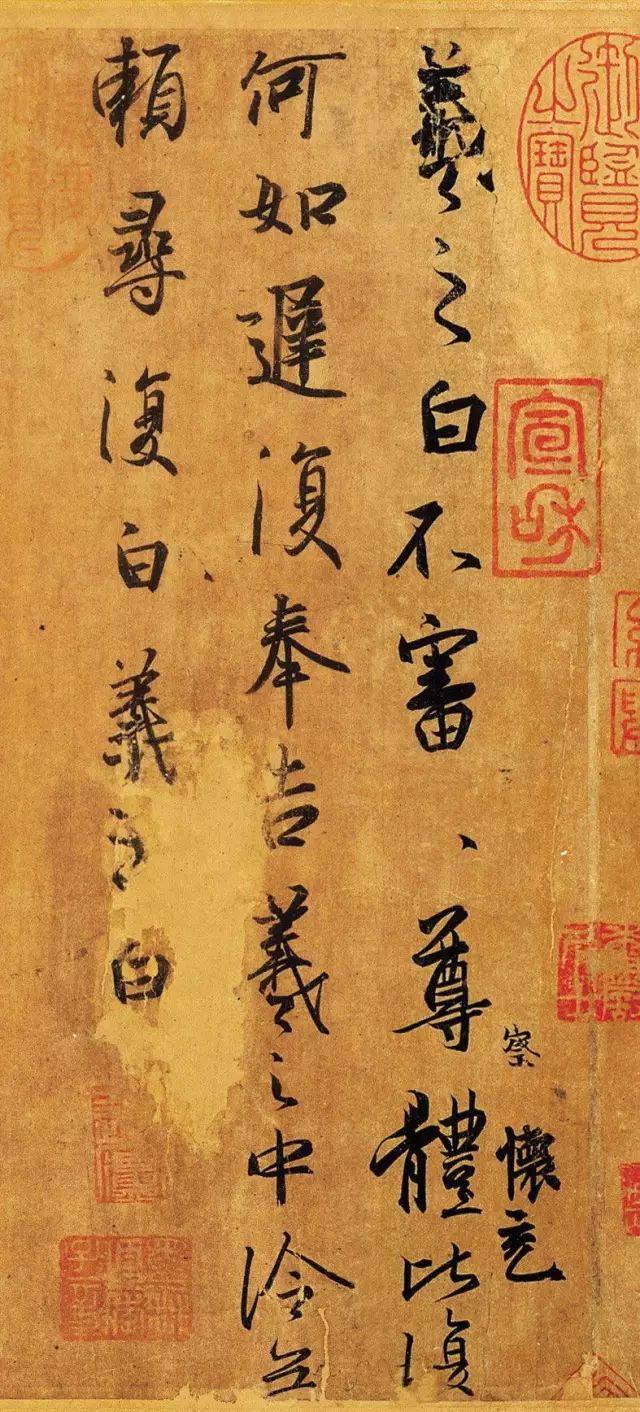 御覽之寶
宣和
察
懷充
羲之白不審、尊體比復
何如遲復奉告羲之中冷无
賴尋復白羲之白